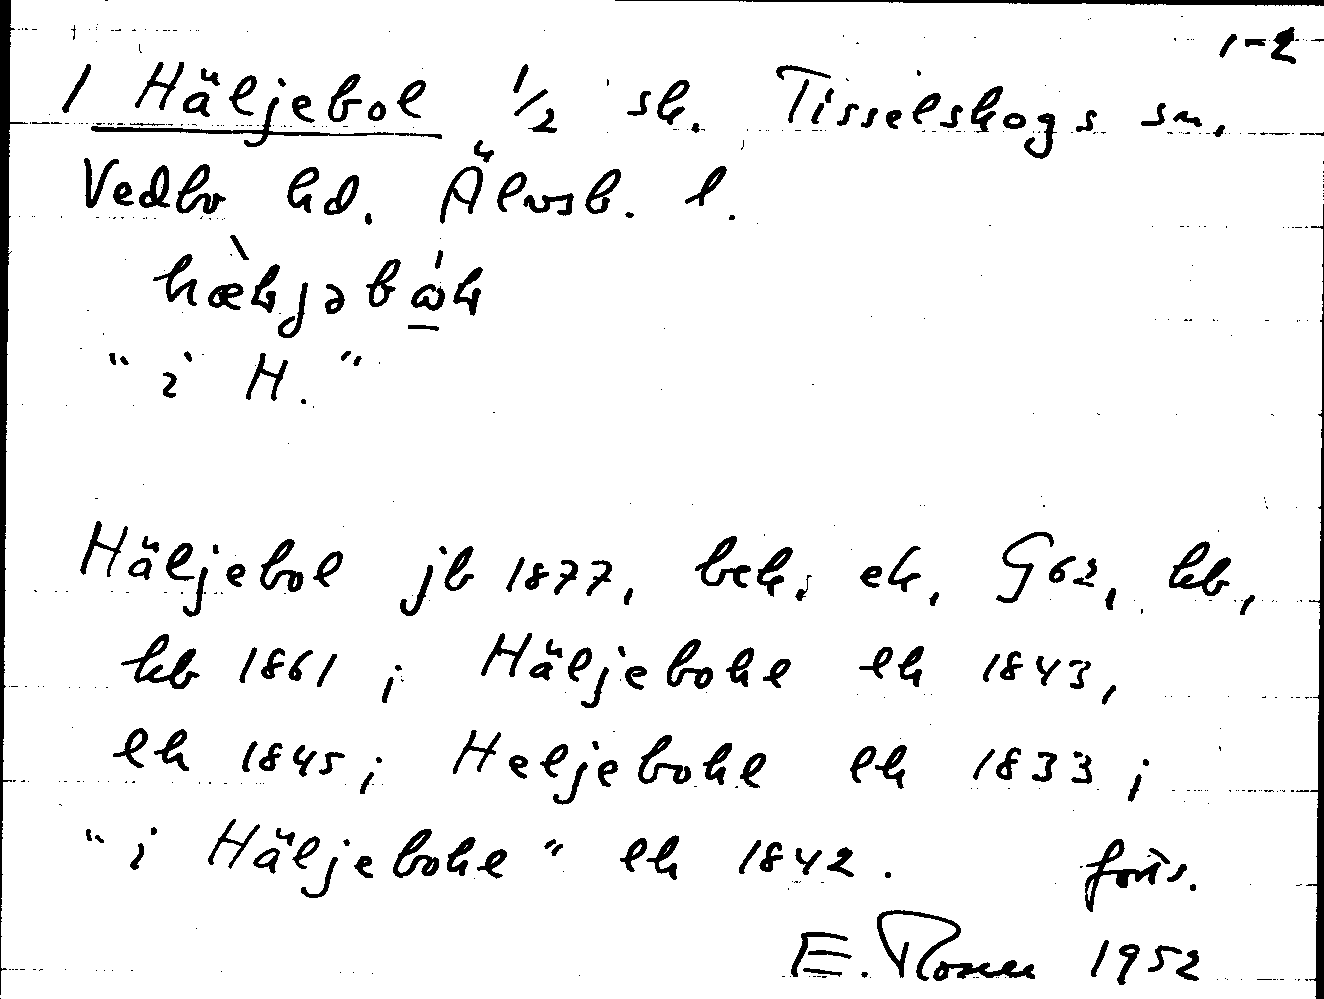 1-2
1 Häljebol 1/2 sk. Tisselskogs sn,
Vedbo hd. Älvsb. l.
"i H."
Häljebol jb 1877, bek, ek, G62, kb,
kb 1861; Häljebohl lk 1843,
lk 1845; Heljebohl lk 1833;
"i Häljebohl" lk 1842. forts.
E. Rosen 1952